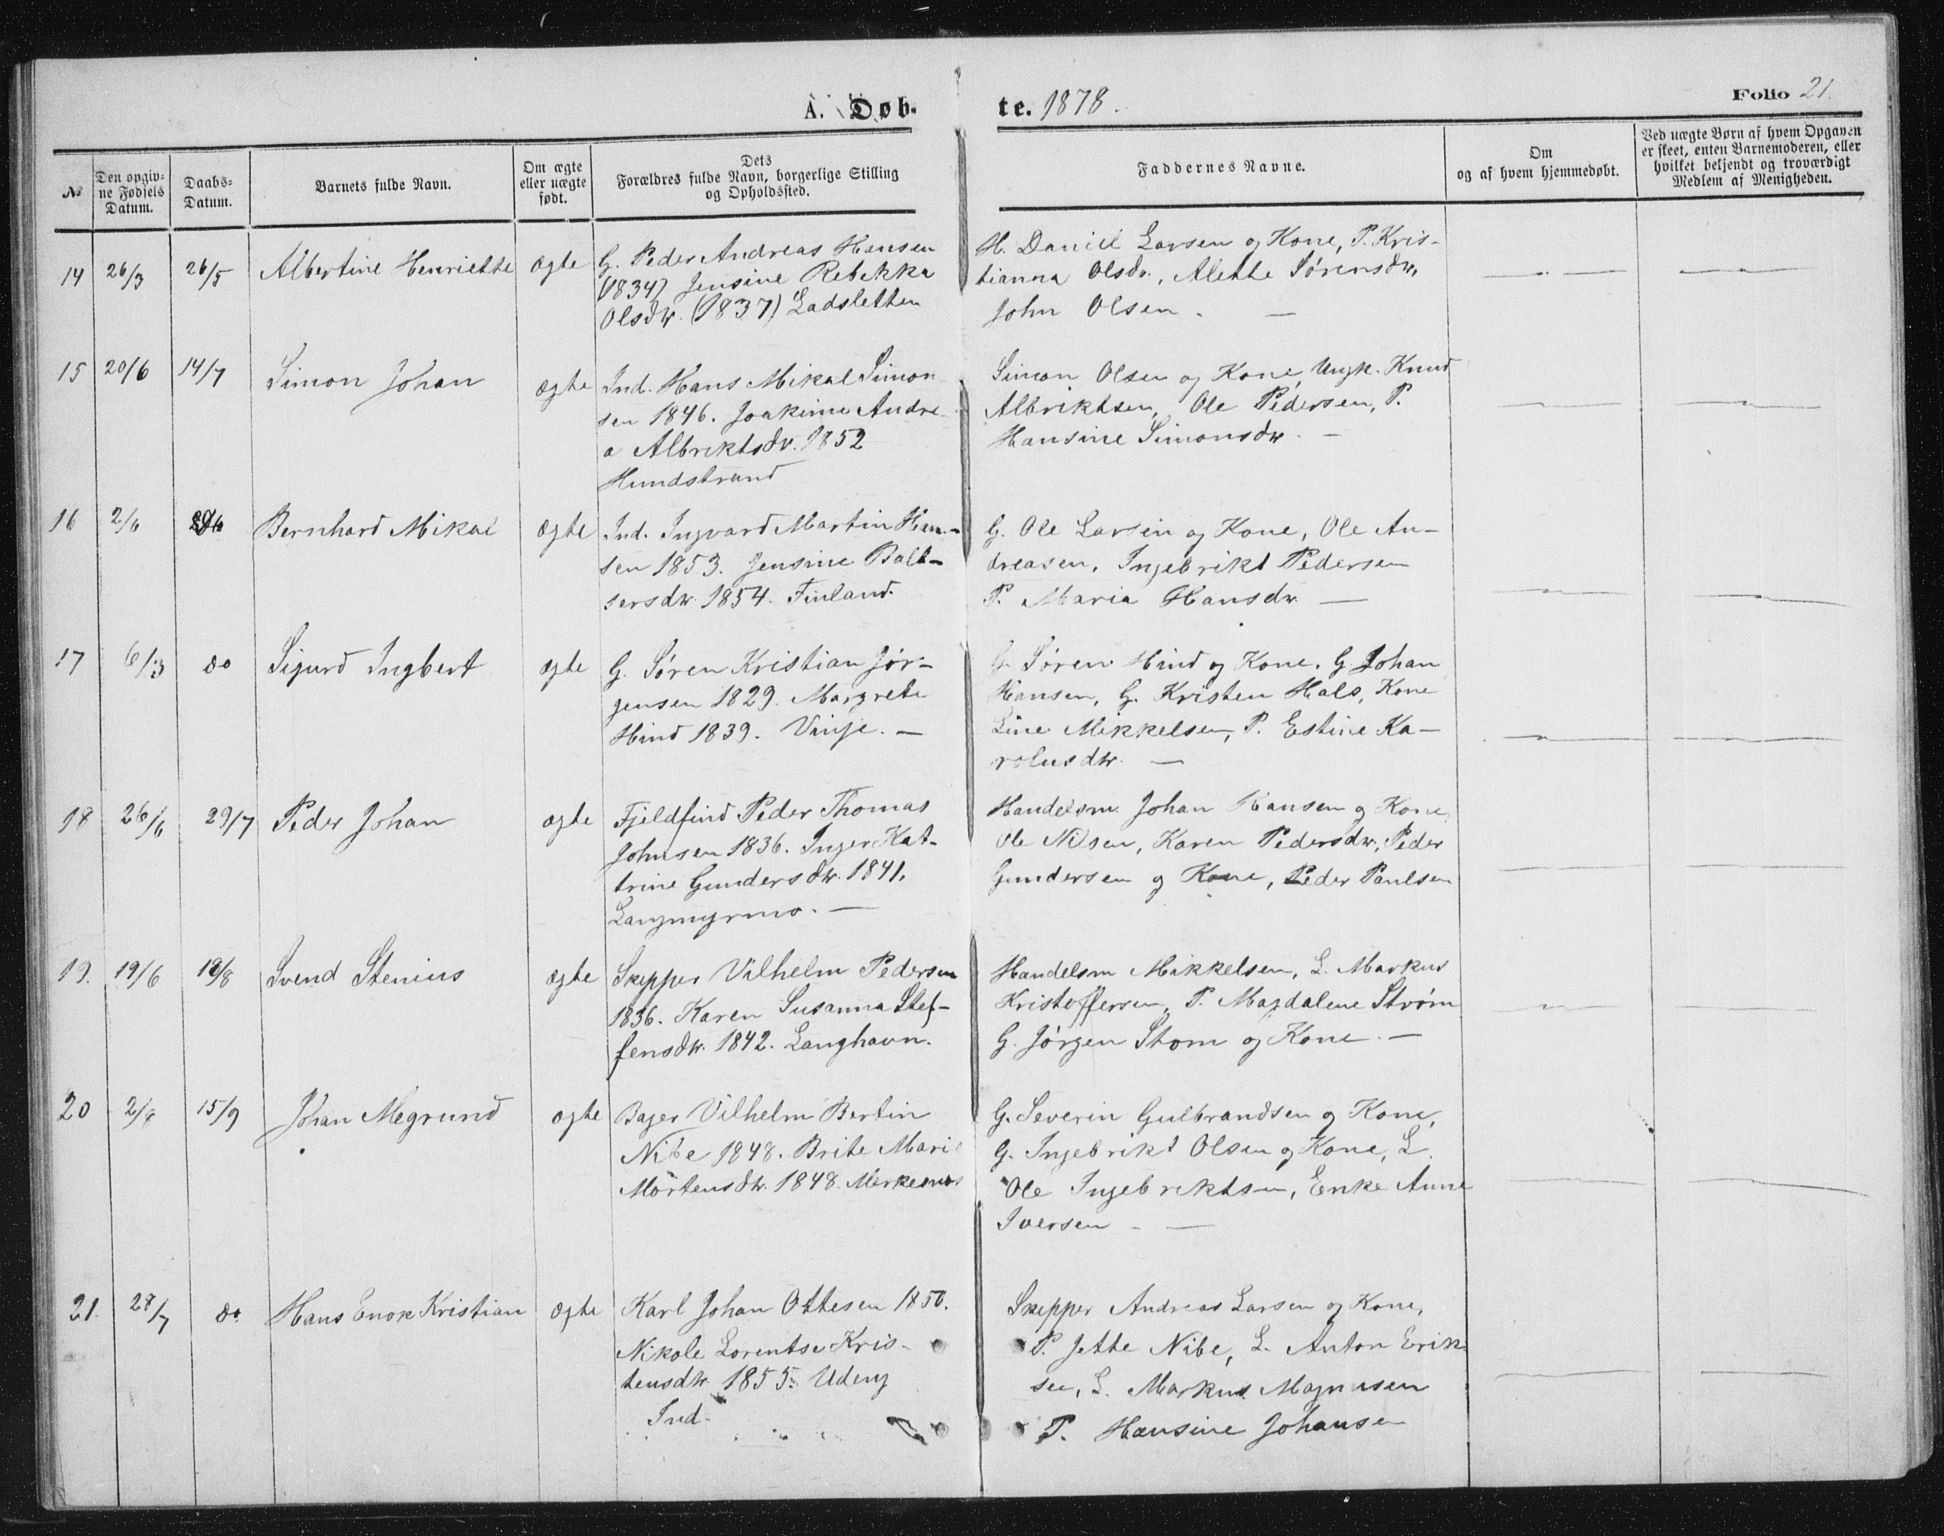 A. Døb-
te. 1878.
Folio 21.
No
Den opgiv-
ne Fødsels
Datum.
Daabs-
Datum.
Barnets fulde Navn.
Om ægte
eller uægte
født.
Dets
Forældres fulde Navn, borgerlige Stilling
og Opholdssted.
Faddernes Navne.
Om
og af hvem hjemmedøbt.
Ved uægte Børn af hvem Opgaven
er skeet, enten Barnemoderen, eller
hvilket beljendt og troværdigt
Medlem af Menigheden.
14 26/3 26/5 Albertine Henriette ægte
G. Peder Andreas Hansen
(1834) Jensine Rebekka
Olsdtr. (1837) Ladsletten
H. Daniel Larsen og Kone, P. Kris-
tianna Olsdr., Alette Sørensdtr,
John Olsen. —
15 20/6 14/7 Simon Johan ægte
Ind. Hans Mikal Simon
sen 1846. Joakime Andre-
a Albriktsdr. 1852
Hundstrand
Simon Olsen og Kone, Ungk. Knud
Albriktsen, Ole Pedersen, P.
Hansine Simonsdtr. —
16 2/6 Bernhard Mikal ægte
Ind. Ingvard Martin Han-
sen 1853. Jensine Balt-
sersdtr. 1854. Finland.
G. Ole Larsen og Kone, Ole An-
dreasen, Ingebrikt Pedersen
P. Maria Hansdtr. —
17 6/3 do Sigurd Ingbert ægte
G. Søren Kristian Jør-
gensen 1829. Margrete
Hind 1839. Vinje. —
G. Søren Hind og Kone, G. Johan
Hansen, G. Kristen Hals, Kone
Line Mikkelsen, P. Estine Ka-
rolusdtr. —
18 26/6 29/7 Peder Johan ægte
Fjeldfind Peder Thomas
Johnsen 1836. Inger Kat-
trine Gundersdtr. 1841.
Langmyrmo. —
Handelsm. Johan Hansen og Kone,
Ole Nilsen, Karen Pedersdtr, Peder
Gundersen og Kone, Peder Paulsen
19. 19/6 18/8 Svend Stenius ægte
Skipper Vilhelm Pedersen
1836. Karen Susanna Stef-
fensdtr. 1842. Langhavn.
Handelsm Mikkelsen, L. Markus
Kristoffersen, P. Magdalene Strøm
G. Jørgen Stom og Kone. —
20 2/8 15/9 Johan Megrund ægte
Bager Vilhelm Bertin
Nibe 1848. Brite Marie
Mortensdtr. 1848.
G. Severin Gulbrandsen og Kone,
G. Ingebrikt Olsen og Kone, L.
Ole Ingebriktsen, Enke Anne
Iversen —
21. 28/7 do. Hans Enok Kristian ægte
Karl Johan Ottesen 1850.
Nikole Lorentse Kris-
tensdtr. 1855. Udeng
Ind.
Skipper Andreas Larsen og Kone,
P. Jette Nibe, L. Anton Erik
sen, L. Markus Magnusen
P. Hansine Johansen